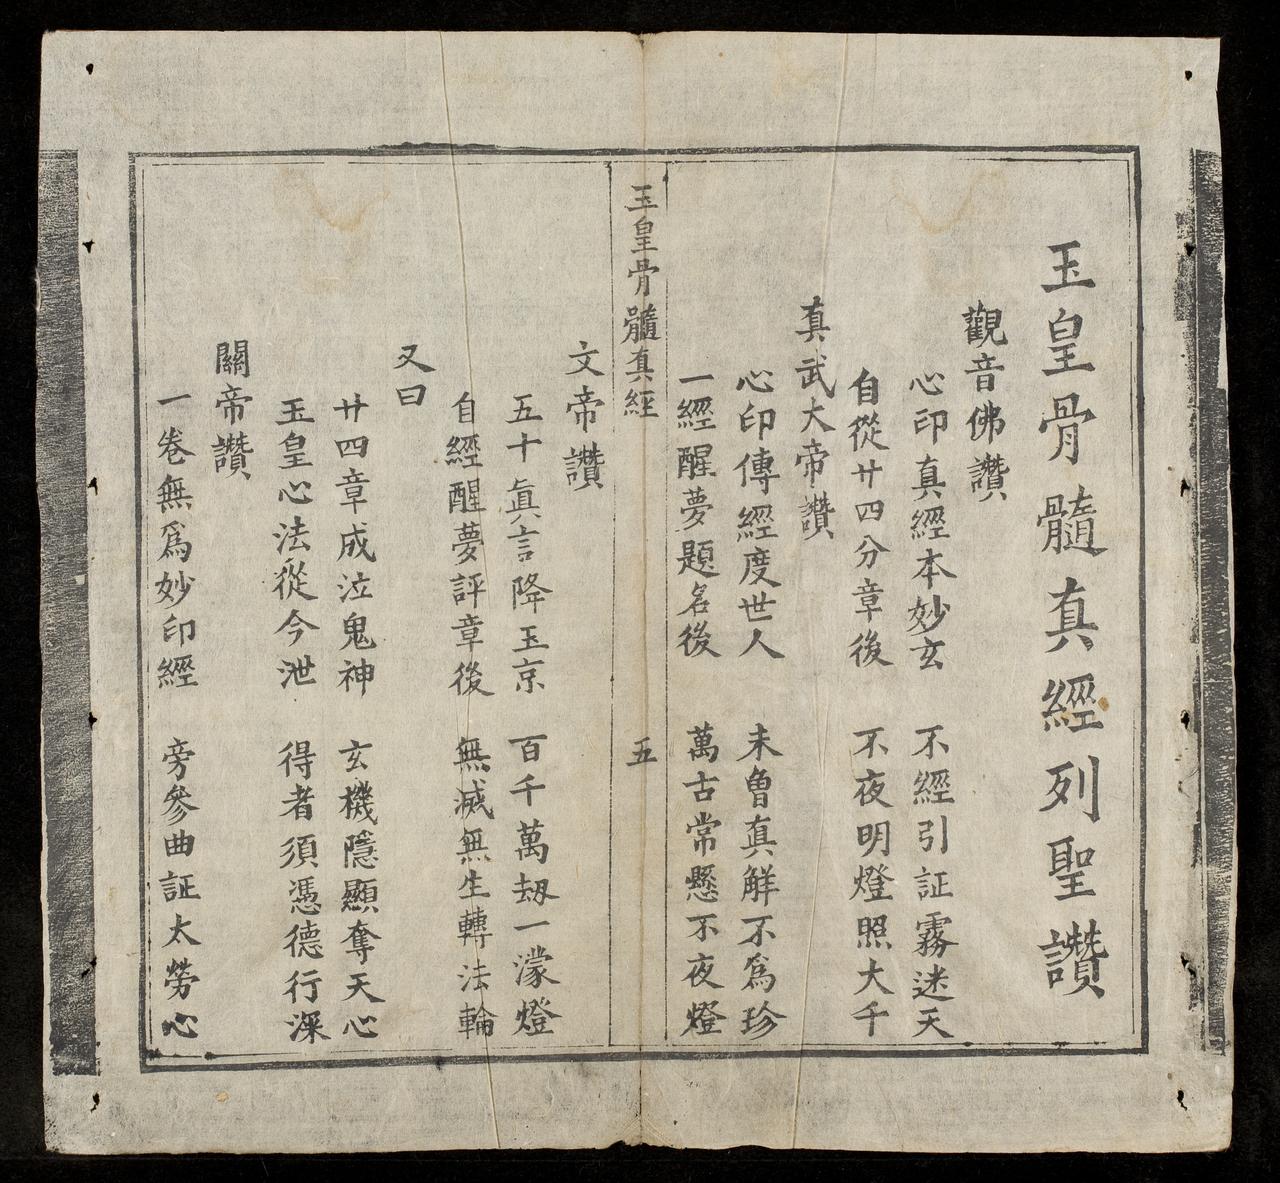 玉皇骨髓真經列聖讚
觀音佛讚
心印真經本妙玄　不經引証霧迷天
自從廿四分章後　不夜明燈照大千
真武大帝讚
心印傳經度世人　未曾真解不爲珍
一經醒夢題名後　萬古常懸不夜燈
玉皇骨髓真經　五
文帝讚
五十眞言降玉京　百千萬刼一濛燈
自經醒夢評章後　無滅無生轉法輪
又曰
廿四章成泣鬼神　玄機隱顯奪天心
玉皇心法從今泄　得者須憑德行深
關帝讚
一卷無爲妙印經　旁參曲証太勞心